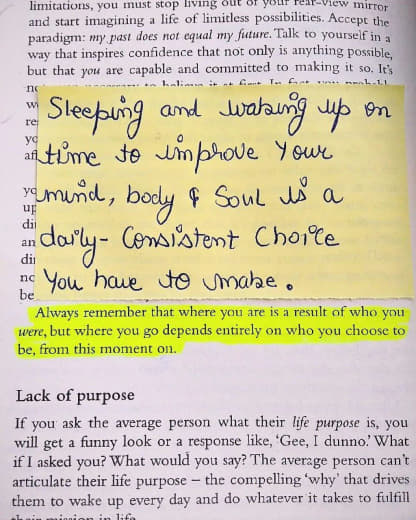 limitations, you must stop living out of your rear-view mirror
and start imagining a life of limitless possibilities. Accept the
paradigm: my past does not equal my future. Talk to yourself in a
way that inspires confidence that not only is anything possible,
but that you are capable and committed to making it so. It's
Sleeping and waking up on
time to improve Your
mind, body & Soul is a
daily- Consistent Choice
You have to make.
Always remember that where you are is a result of who you
were, but where you go depends entirely on who you choose to
be, from this moment on.
Lack of purpose
If you ask the average person what their life purpose is, you
will get a funny look or a response like, 'Gee, I dunno.' What
if I asked you? What would you say? The average person can't
articulate their life purpose – the compelling 'why' that drives
them to wake up every day and do whatever it takes to fulfill
their mission in life